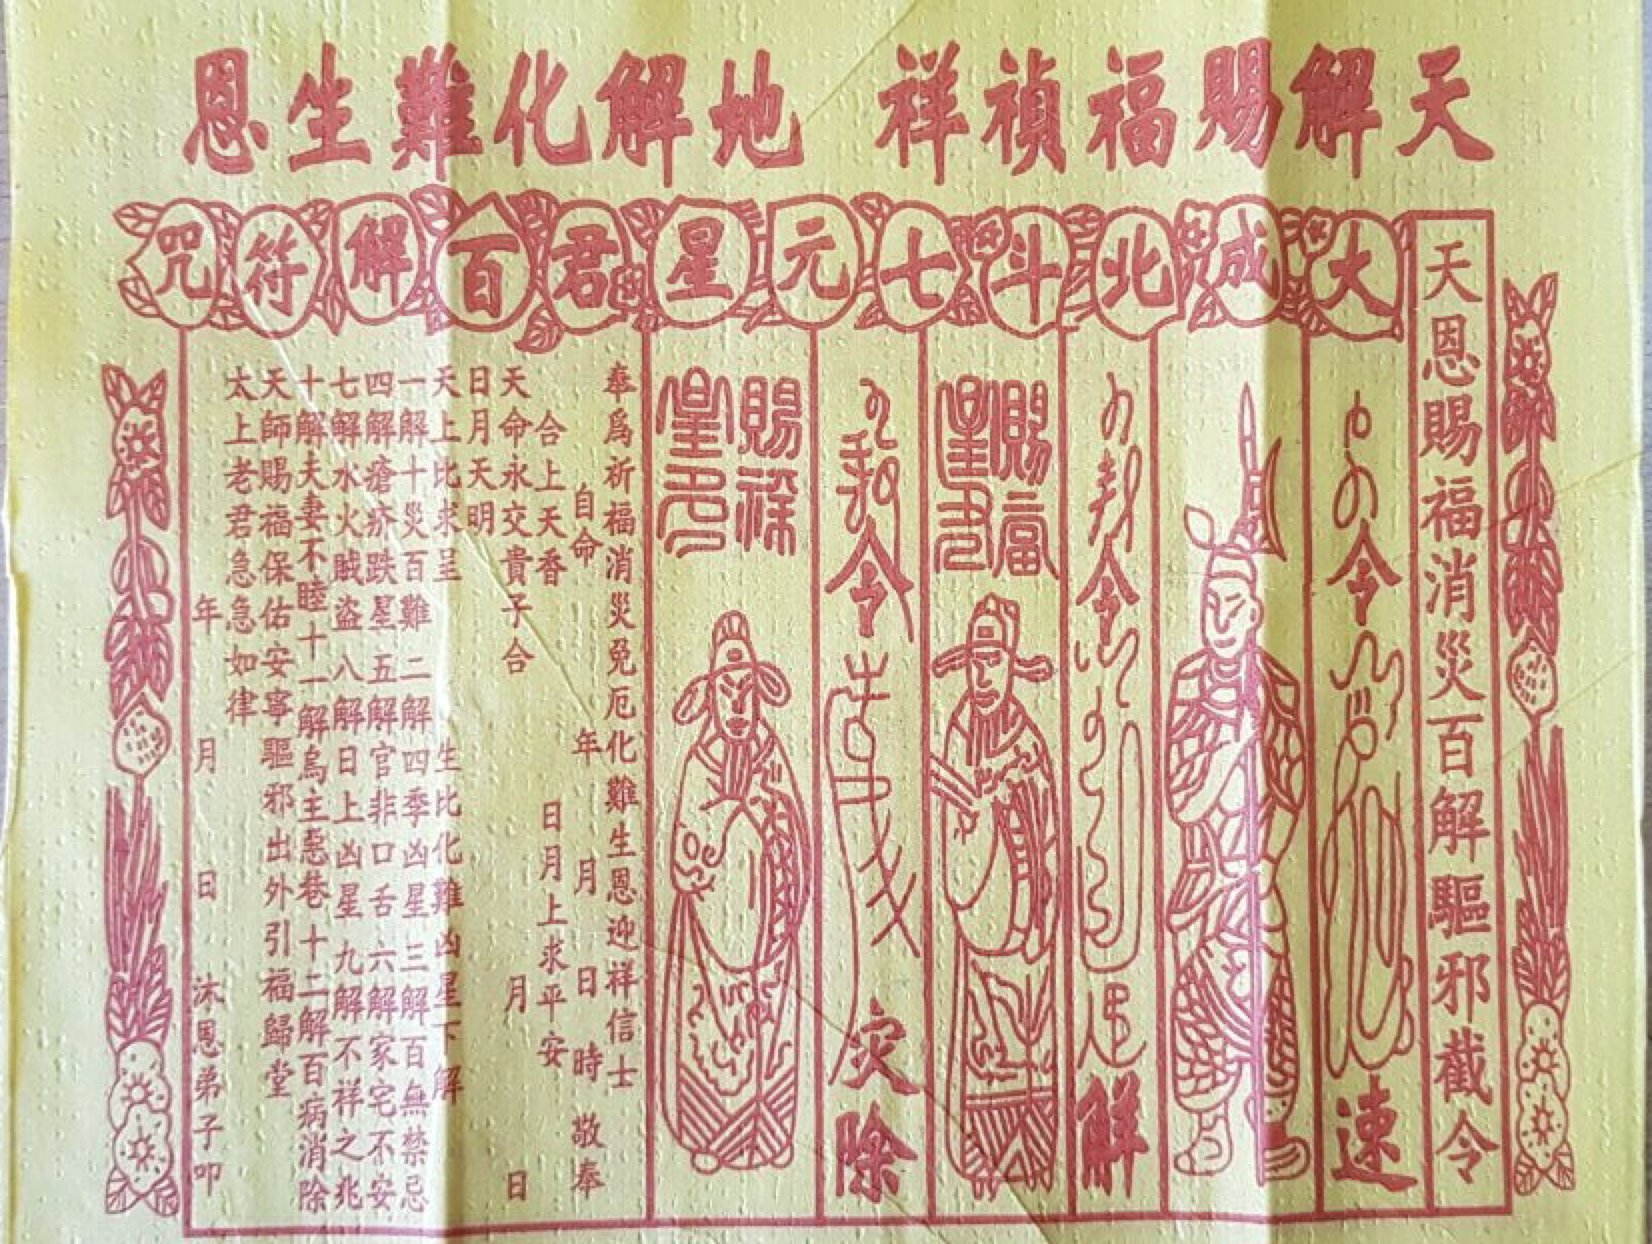 天解賜福禎祥 地解化難生恩
大成北斗七元星君百解符咒
天恩賜福消災百解驅邪截令
令 速
令 解
賜福
令 灾除
賜
奉爲祈福消災免厄化難生恩迎祥信士
自命 年 月 日 時 敬奉
合上天香 日月上求平安
天命永交貴子合 月 日
日月天明
天上比求呈 生比化難凶星下解
一解十災百難 二解四季凶星 三解百無禁忌
四解瘡疥跌星 五解官非口舌 六解家宅不安
七解水火賊盗 八解日上凶星 九解不祥之兆
十解夫妻不睦 十一解烏主惡巷 十二解百病消除
天師賜福保佑安寧 驅邪出外引福歸堂
太上老君急急如律
年 月 日 沐恩弟子叩